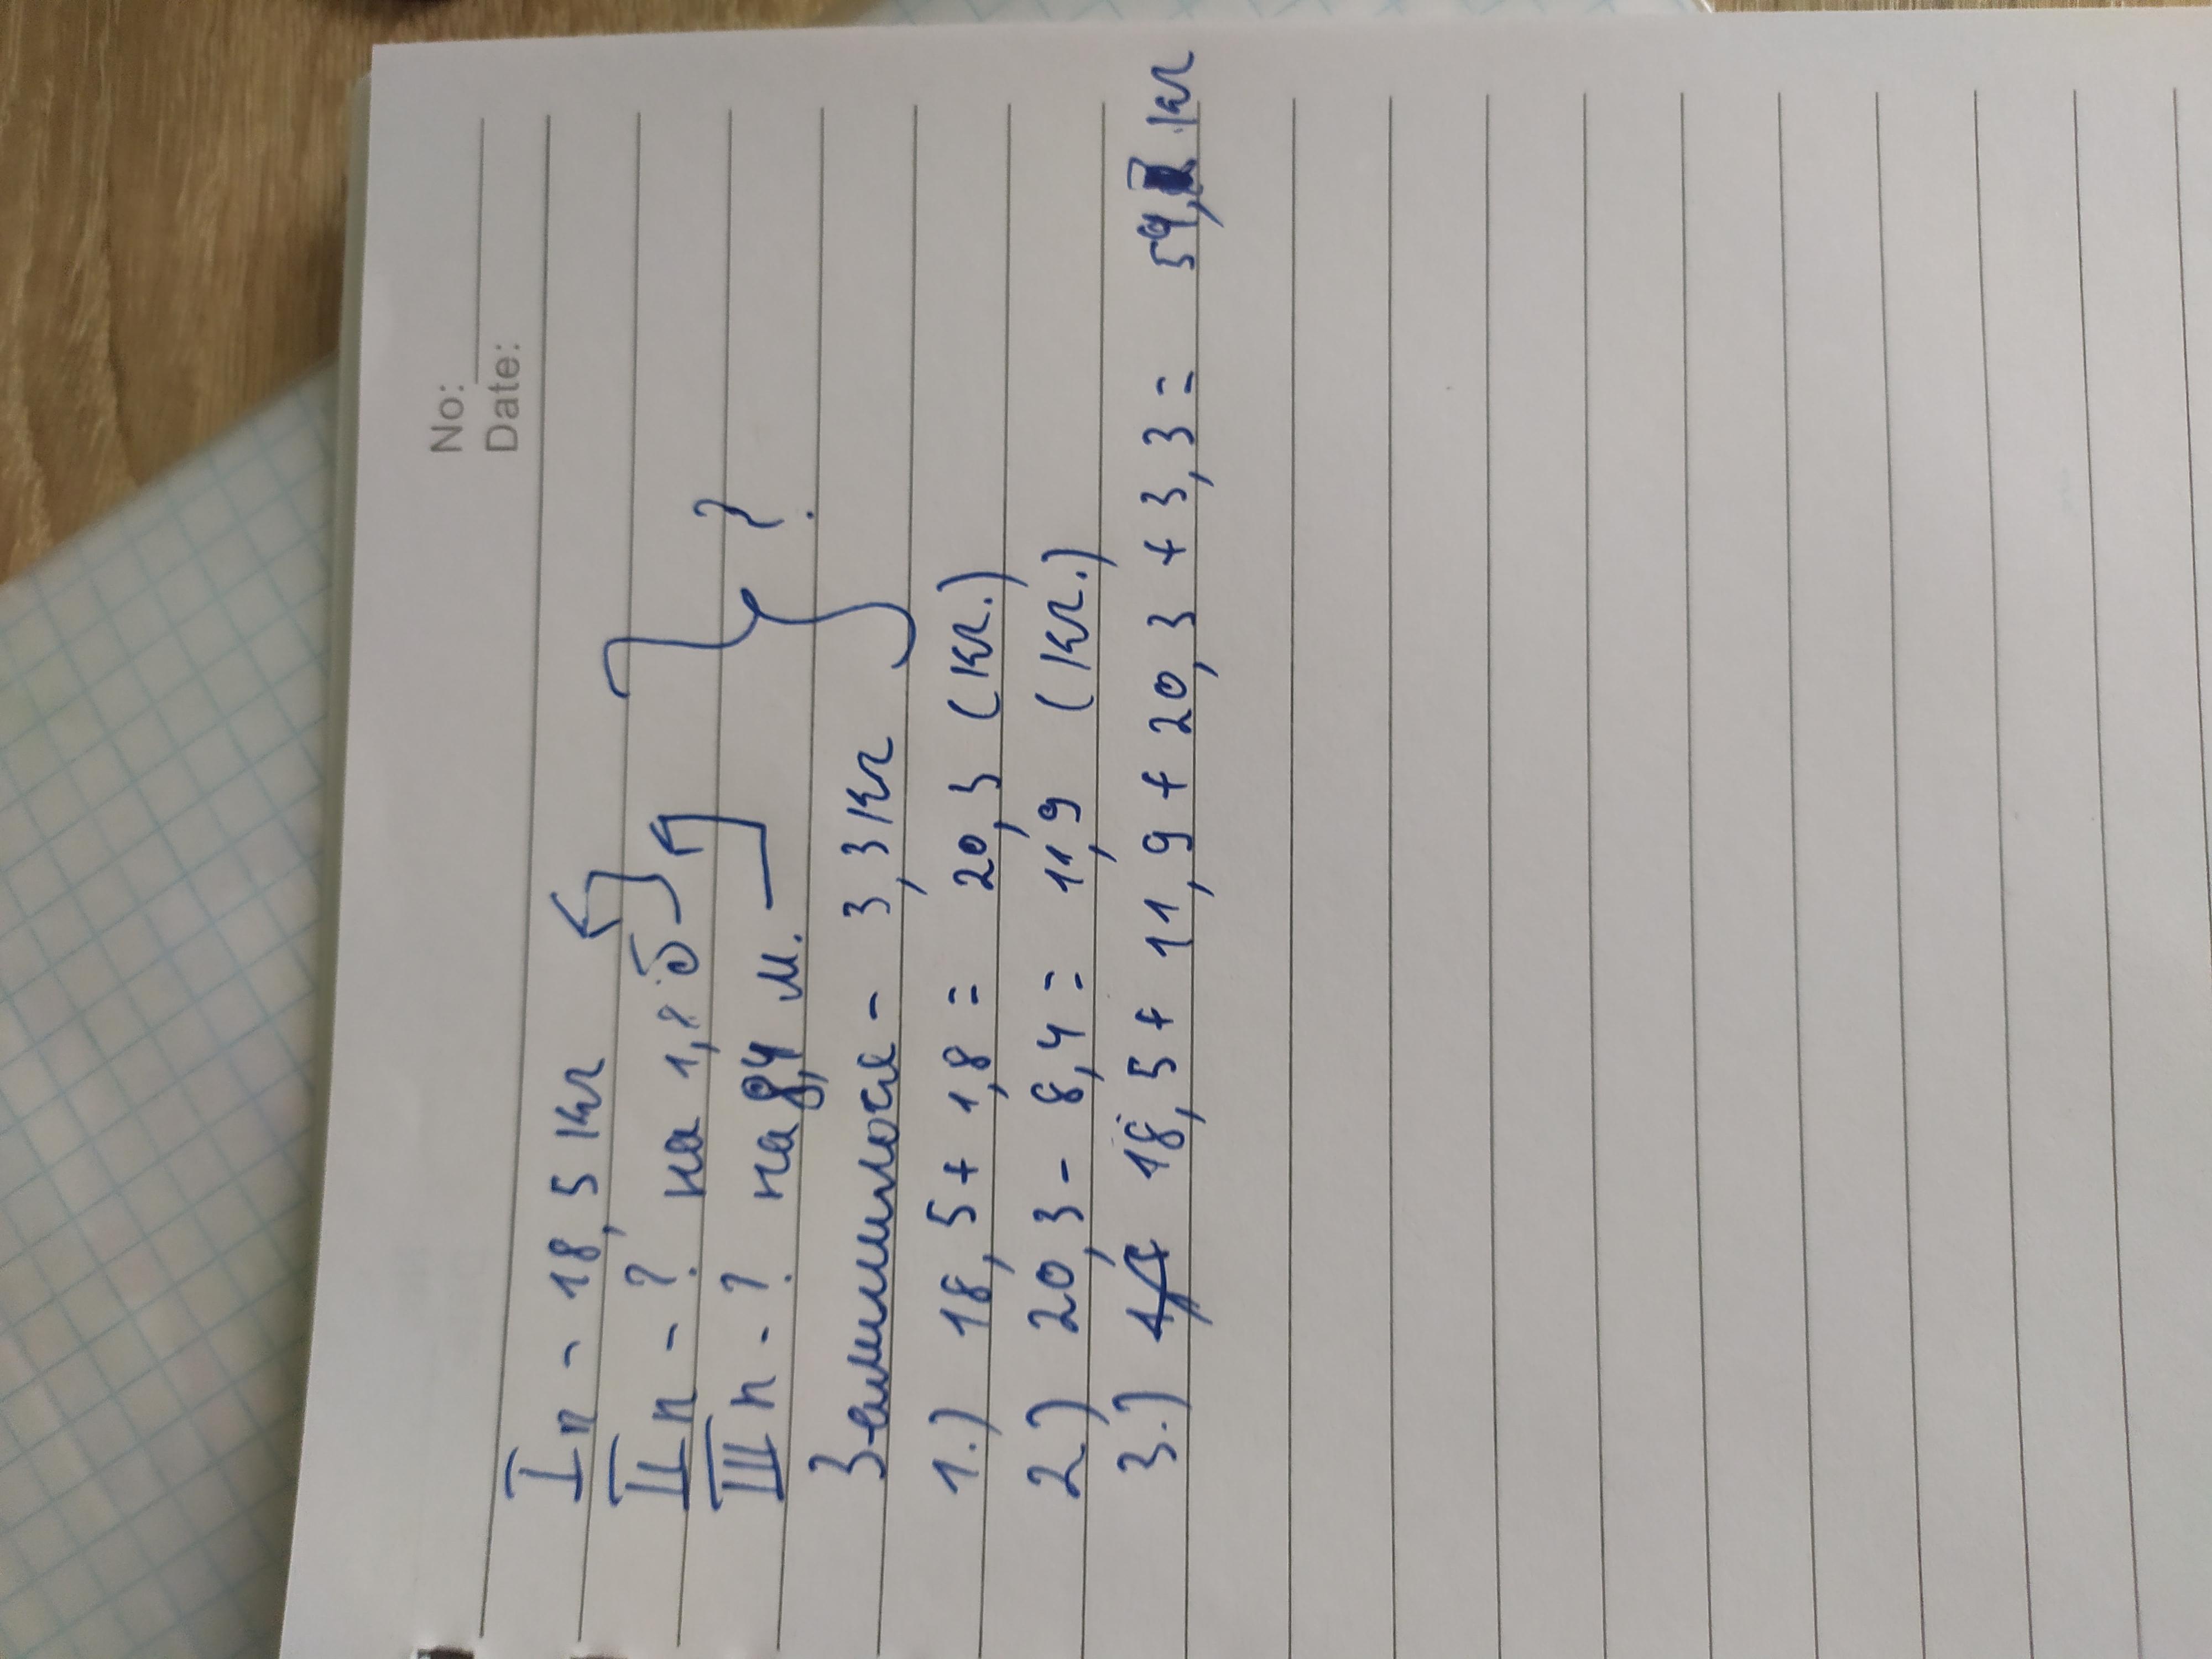 No:
Date:
I п - 18,5 кг
II п - ? на 1,8 б
III п - ? на 8,4 м.
Залишилося - 3,3 кг
?
1.) 18,5 + 1,8 = 20,3 (кг.)
2) 20,3 - 8,4 = 11,9 (кг.)
3.) 18,5 + 11,9 + 20,3 + 3,3 = 54, кг